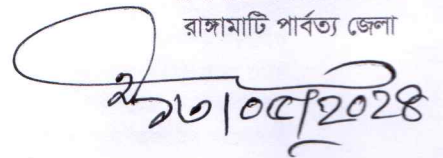 রাঙ্গামাটি পার্বত্য জেলা
১৩|০৫|২০২৪